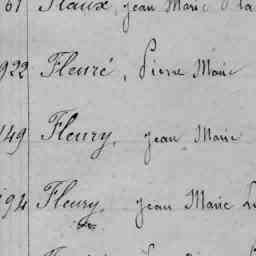 67 Flaux, Jean Marie
922 Fleuré, Pierre Marie
149 Fleury, Jean Marie
194 Fleury, Jean Marie